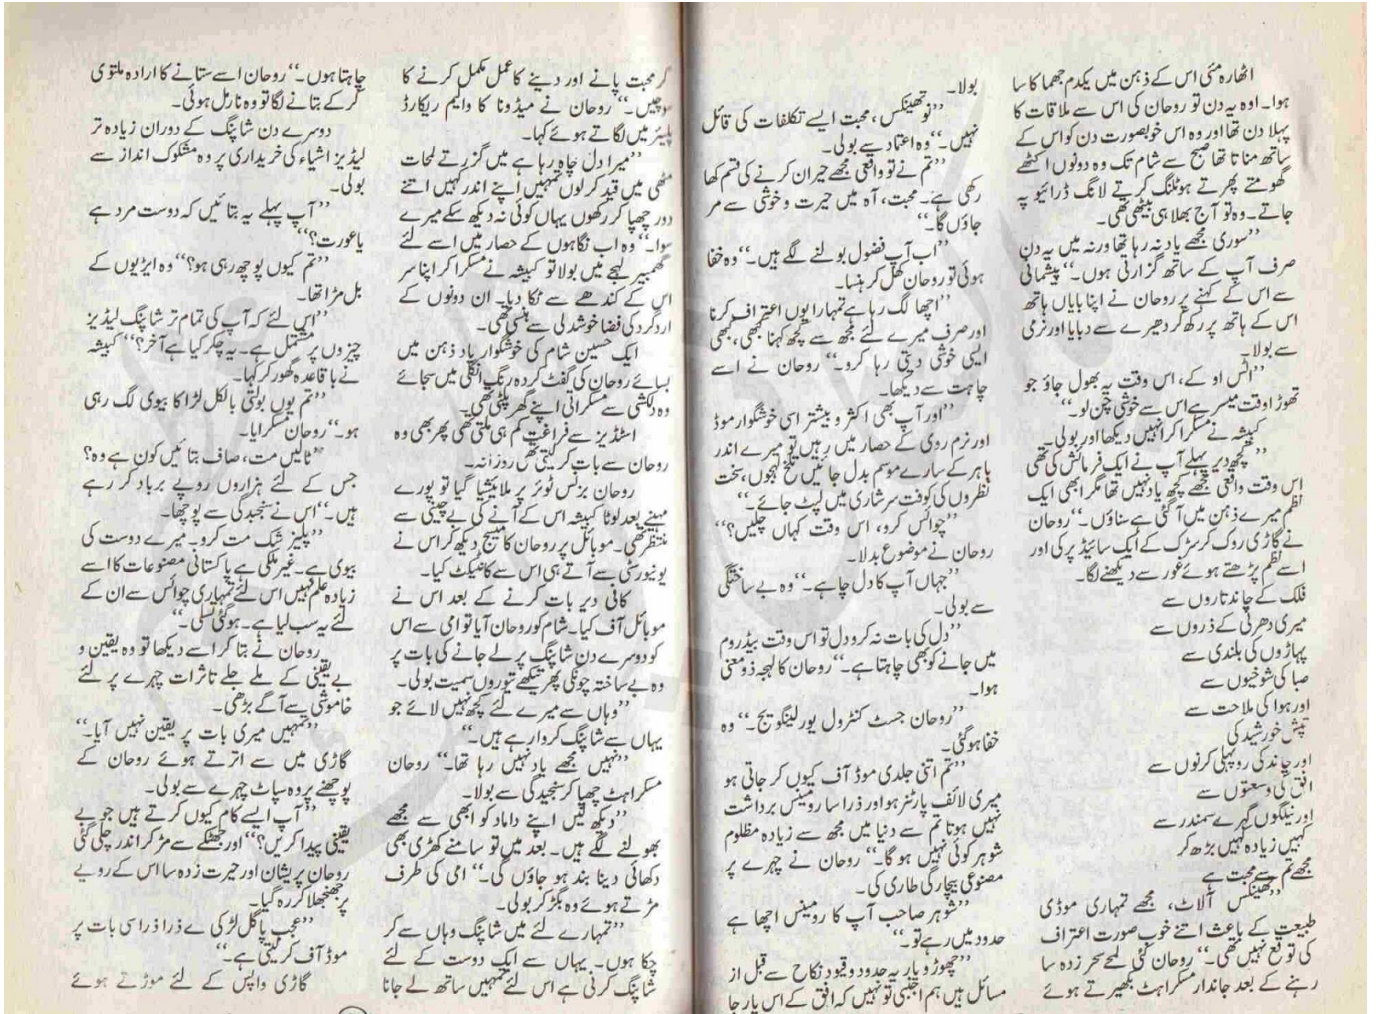 اٹھارہ مئی اس کے ذہن میں یکدم جھما کا سا
ہوا۔ اوہ یہ دن تو روحان کی اس سے ملاقات کا
پہلا دن تھا اور وہ اس خوبصورت دن کو اس کے
ساتھ مناتا تھا صبح سے شام تک وہ دونوں اکٹھے
گھومتے پھرتے ہوٹلنگ کرتے لانگ ڈرائیو پہ
جاتے۔ وہ تو آج بھلا ہی بیٹھی تھی۔
’’سوری مجھے یاد نہ رہا تھا ورنہ میں یہ دن
صرف آپ کے ساتھ گزارتی ہوں۔‘‘ پیشمانی
سے اس کے کہنے پر روحان نے اپنا بایاں ہاتھ
اس کے ہاتھ پر رکھ کر دھیرے سے دبایا اور نرمی
سے بولا۔
’’اٹس او کے، اس وقت یہ بھول جاؤ جو
تھوڑا وقت میسر ہے اس سے خوشی چن لو۔‘‘
کبیشہ نے مسکرا کر انہیں دیکھا اور بولی۔
’’کچھ دیر پہلے آپ نے ایک فرمائش کی تھی
اس وقت واقعی مجھے کچھ یاد نہیں تھا مگر ابھی ایک
نظم میرے ذہن میں آ گئی ہے سناؤں۔‘‘ روحان
نے گاڑی روک کر سڑک کے ایک سائیڈ پر کی اور
اسے نظم پڑھتے ہوئے غور سے دیکھنے لگا۔
فلک کے چاند تاروں سے
میری دھرتی کے ذروں سے
پہاڑوں کی بلندی سے
صبا کی شوخیوں سے
اور ہوا کی ملاحت سے
تپش خورشید کی
اور چاند کی روپہلی کرنوں سے
افق کی وسعتوں سے
اور نیلگوں گہرے سمندر سے
کہیں زیادہ کہیں بڑھ کر
مجھے تم سے محبت ہے
’’تھینکس آلاٹ، مجھے تمہاری موڈی
طبیعت کے باعث اتنے خوب صورت اعتراف
کی توقع نہیں تھی۔‘‘ روحان کئی لمحے سحر زدہ سا
رہنے کے بعد جاندار مسکراہٹ بکھیرتے ہوئے
بولا۔
’’نو تھینکس، محبت ایسے تکلفات کی قائل
نہیں۔‘‘ وہ اعتماد سے بولی۔
’’تم نے تو واقعی مجھے حیران کرنے کی قسم کھا
رکھی ہے۔ محبت، آہ میں حیرت و خوشی سے مر
جاؤں گا۔‘‘
’’اب آپ فضول بولنے لگے ہیں۔‘‘ وہ خفا
ہوئی تو روحان کھل کر ہنسا۔
’’اچھا لگ رہا ہے تمہارا یوں اعتراف کرنا
اور صرف میرے لئے مجھ سے کچھ کہنا کبھی، کبھی
ایسی خوشی دیتی رہا کرو۔‘‘ روحان نے اسے
چاہت سے دیکھا۔
’’اور آپ بھی اکثر و بیشتر اسی خوشگوار موڈ
اور نرم روی کے حصار میں رہیں تو میرے اندر
باہر کے سارے موسم بدل جائیں تلخ لہجوں، سخت
نظروں کی کوفت سرشاری میں لپٹ جائے۔‘‘
’’چوائس کرو، اس وقت کہاں چلیں؟‘‘
روحان نے موضوع بدلا۔
’’جہاں آپ کا دل چاہے۔‘‘ وہ بے ساختگی
سے بولی۔
’’دل کی بات نہ کرو دل تو اس وقت بیڈروم
میں جانے کو بھی چاہتا ہے۔‘‘ روحان کا لہجہ ذومعنی
ہوا۔
’’روحان جسٹ کنٹرول یور لینگویج۔‘‘ وہ
خفا ہو گئی۔
’’تم اتنی جلدی موڈ آف کیوں کر جاتی ہو
میری لائف پارٹنر ہو اور ذرا سا رومینس برداشت
نہیں ہوتا تم سے دنیا میں مجھ سے زیادہ مظلوم
شوہر کوئی نہیں ہو گا۔‘‘ روحان نے چہرے پر
مصنوعی بیچارگی طاری کی۔
’’شوہر صاحب آپ کا رومینس اچھا ہے
حدود میں رہے تو۔‘‘
’’چھوڑو یار یہ حدود و قیود نکاح سے قبل از
مسائل ہیں ہم اجنبی تو نہیں کہ افق کے اس پار جا
کر محبت پانے اور دینے کا عمل مکمل کرنے کا
سوچیں۔‘‘ روحان نے میڈونا کا والیم ریکارڈ
پلیئر میں لگاتے ہوئے کہا۔
’’میرا دل چاہ رہا ہے میں گزرتے لمحات
مٹھی میں قید کر لوں تمہیں اپنے اندر کہیں اتنے
دور چھپا کر رکھوں یہاں کوئی نہ دیکھ سکے میرے
سوا۔‘‘ وہ اب نگاہوں کے حصار میں اسے لئے
گھمبیر لہجے میں بولا تو کبیشہ نے مسکرا کر اپنا سر
اس کے کندھے سے ٹکا دیا۔ ان دونوں کے
اردگرد کی فضا خوشدلی سے ہنسی تھی۔
ایک حسین شام کی خوشگوار یاد ذہن میں
بسائے روحان کی گفٹ کردہ رنگ انگلی میں سجائے
وہ دلکشی سے مسکراتی اپنے گھر پلٹی تھی۔
اسٹڈیز سے فراغت کم ہی ملتی تھی پھر بھی وہ
روحان سے بات کر لیتی تھی روزانہ۔
روحان بزنس ٹوئر پر ملائیشیا گیا تو پورے
مہینے بعد لوٹا کبیشہ اس کے آنے کی بے چینی سے
منتظر تھی۔ موبائل پر روحان کا میسج دیکھ کر اس نے
یونیورسٹی سے آتے ہی اس سے کانٹیکٹ کیا۔
کافی دیر بات کرنے کے بعد اس نے
موبائل آف کیا۔ شام کو روحان آیا تو امی سے اس
کو دوسرے دن شاپنگ پر لے جانے کی بات پر
وہ بے ساختہ چونکی پھر تیکھے تیوروں سمیت بولی۔
’’وہاں سے میرے لئے کچھ نہیں لائے جو
یہاں سے شاپنگ کروا رہے ہیں۔‘‘
’’نہیں مجھے یاد نہیں رہا تھا۔‘‘ روحان
مسکراہٹ چھپا کر سنجیدگی سے بولا۔
’’دیکھ لیں اپنے داماد کو ابھی سے مجھے
بھولنے لگے ہیں۔ بعد میں تو سامنے کھڑی بھی
دکھائی دینا بند ہو جاؤں گی۔‘‘ امی کی طرف
مڑتے ہوئے وہ بگڑ کر بولی۔
’’تمہارے لئے میں شاپنگ وہاں سے کر
چکا ہوں۔ یہاں سے ایک دوست کے لئے
شاپنگ کرنی ہے اس لئے تمہیں ساتھ لے جانا
چاہتا ہوں۔‘‘ روحان اسے ستانے کا ارادہ ملتوی
کر کے بتانے لگا تو وہ نارمل ہوئی۔
دوسرے دن شاپنگ کے دوران زیادہ تر
لیڈیز اشیاء کی خریداری پر وہ مشکوک انداز سے
بولی۔
’’آپ پہلے یہ بتائیں کہ دوست مرد ہے
یا عورت؟‘‘
’’تم کیوں پوچھ رہی ہو؟‘‘ وہ ایڑیوں کے
بل مڑا تھا۔
’’اس لئے کہ آپ کی تمام تر شاپنگ لیڈیز
چیزوں پر مشتمل ہے۔ یہ چکر کیا ہے آخر؟‘‘ کبیشہ
نے باقاعدہ گھور کر کہا۔
’’تم یوں بولتی بالکل لڑاکا بیوی لگ رہی
ہو۔‘‘ روحان مسکرایا۔
’’ٹالیں مت، صاف بتائیں کون ہے وہ؟
جس کے لئے ہزاروں روپے برباد کر رہے
ہیں۔‘‘ اس نے سنجیدگی سے پوچھا۔
’’پلیز شک مت کرو۔ میرے دوست کی
بیوی ہے۔ غیر ملکی ہے پاکستانی مصنوعات کا اسے
زیادہ علم نہیں اس لئے تمہاری چوائس سے ان کے
لئے یہ سب لیا ہے۔ ہو گئی تسلی۔‘‘
روحان نے بتا کر اسے دیکھا تو وہ یقین و
بے یقینی کے ملے جلے تاثرات چہرے پر لئے
خاموشی سے آگے بڑھی۔
’’تمہیں میری بات پر یقین نہیں آیا۔‘‘
گاڑی میں سے اترتے ہوئے روحان کے
پوچھنے پر وہ سپاٹ چہرے سے بولی۔
’’آپ ایسے کام کیوں کرتے ہیں جو بے
یقینی پیدا کریں؟‘‘ اور جھٹکے سے مڑ کر اندر چلی گئی
روحان پریشان اور حیرت زدہ سا اس کے رویے
پر جھنجھلا کر رہ گیا۔
’’عجب پاگل لڑکی ہے ذرا ذرا سی بات پر
موڈ آف کر لیتی ہے۔‘‘
گاڑی واپس کے لئے موڑتے ہوئے